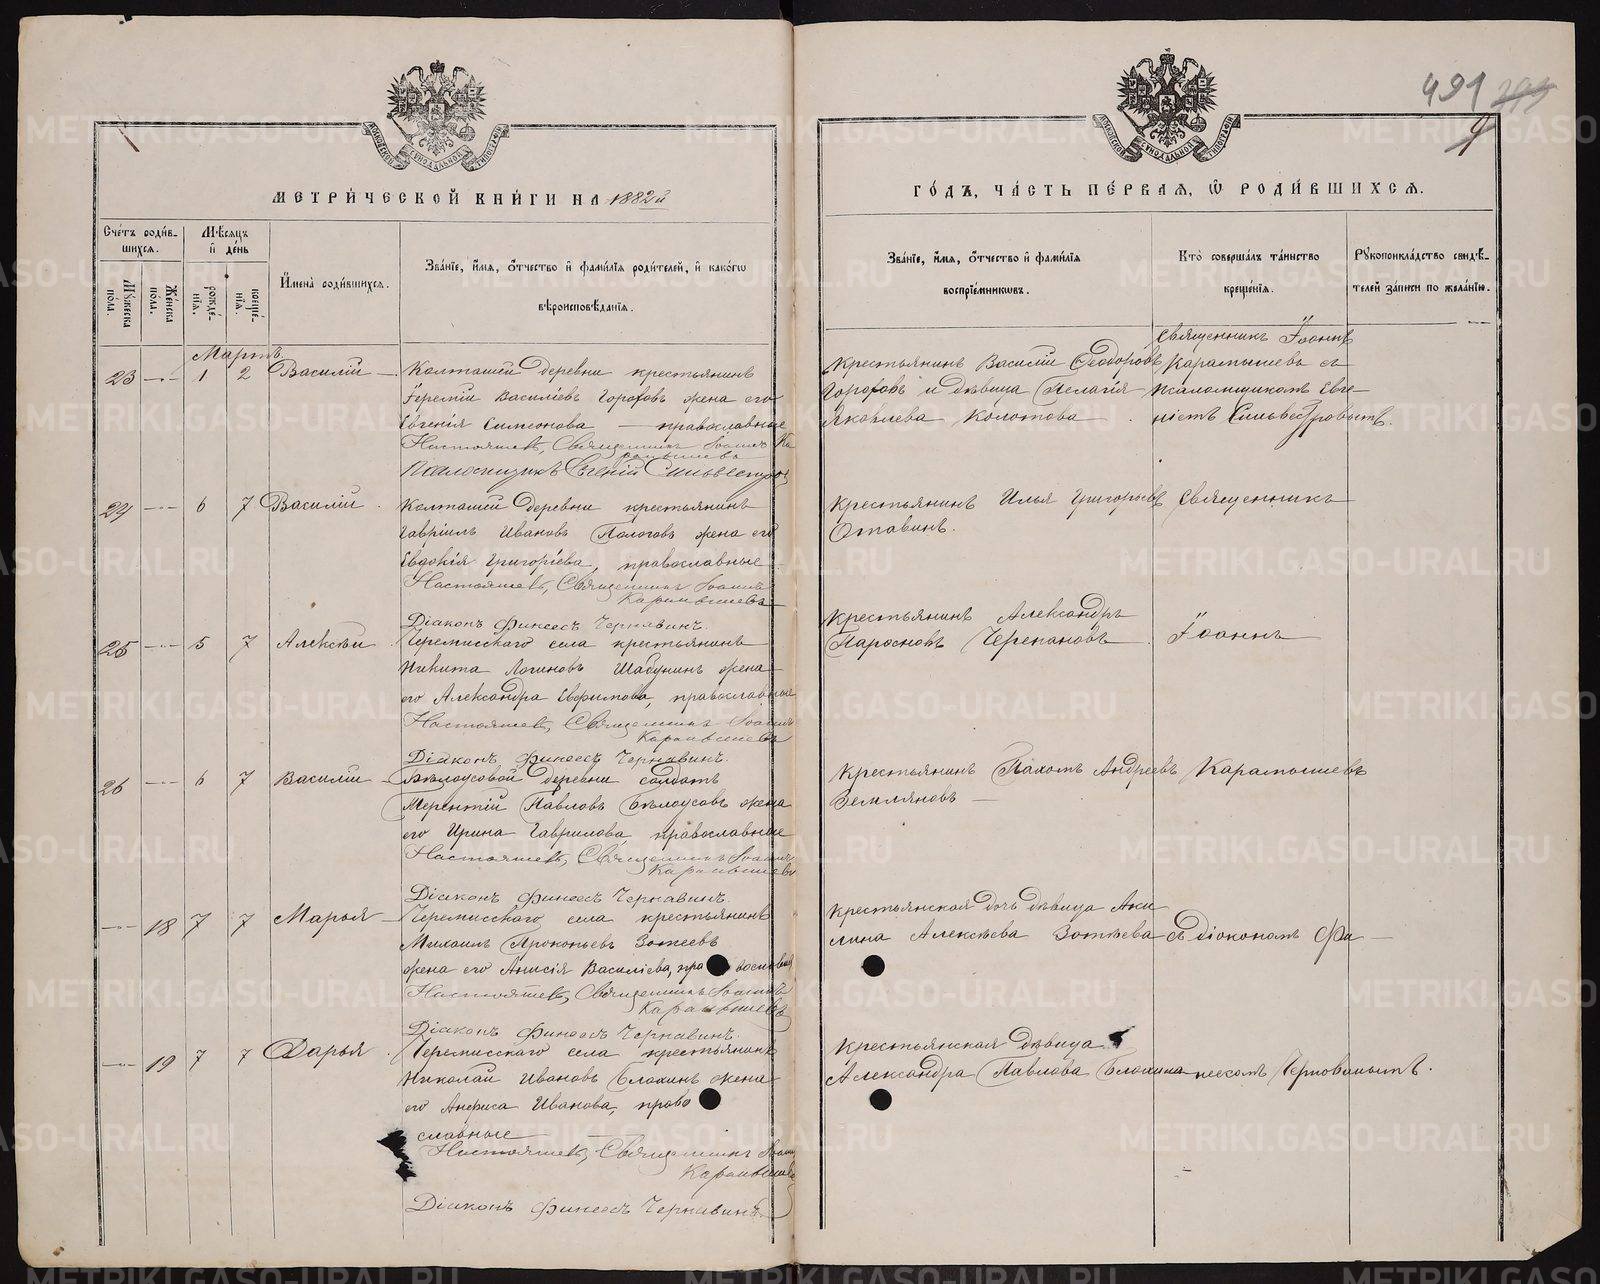 491
9
МЕТРИ́ЧЕСКОЙ КНИ́ГИ НА 1882й
ГО́ДЪ, ЧА́СТЬ ПЕ́РВАЯ, Ѡ РОДИ́ВШИХСЯ.
Сче́тъ роди́в-
шихся.
Му́жеска по́ла.
Же́нска по́ла.
Мѣ́сяцъ
и де́нь
рожде́-
нія.
креще́-
нія.
Имена̀ роди́вшихся.
Зва́ніе, и́мя, о́тчество и фами́лія роди́телей, и како́гѡ
вѣроисповѣ́данія.
Зва́ніе, и́мя, о́тчество и фами́лія
воспріе́мниковъ.
Кто̀ соверша́лъ та́инство
креще́нія.
Рукоприкла́дство свидѣ́-
телей за́писи по жела́нію.
Мартъ
23 — 1 2 Василій
Колташей деревни крестьянинъ
Іеремій Василіевъ Гороховъ жена его
Евгенія Симеонова — православные
Настоятель, Священникъ Іоаннъ Ка
рамышевъ
Псаломщикъ Евгеній Сильвестров
Крестьянинъ Василій Ѳеодоровъ
Гороховъ и дѣвица Пелагія
Яковлева Колотова
Священникъ Іоаннъ
Карамышевъ съ
псаломщикомъ Евге
ніемъ Сильвестровымъ.
24 — 6 7 Василій
Колташей деревни крестьянинъ
Гавріилъ Ивановъ Пологовъ жена его
Евдокія Григоріева, православные
Настоятель, Священникъ Іоаннъ
Карамышевъ
Діаконъ Финеесъ Чернавинъ.
Крестьянинъ Илья Григорьевъ
Отавинъ.
Священникъ
25 — 5 7 Алексѣй
Черемисскаго села крестьянинъ
Никита Логиновъ Шабунинъ жена
его Александра Евфимова, православные
Настоятель, Священникъ Іоаннъ
Карамышевъ
Діаконъ Финеесъ Чернавинъ.
Крестьянинъ Александръ
Черепановъ
Іоаннъ
26 — 6 7 Василій
Бѣлоусовой деревни солдатъ
Терентій Павловъ Бѣлоусовъ жена
его Ирина Гаврилова православные
Настоятель, Священникъ Іоаннъ
Карамышевъ
Діаконъ Финеесъ Чернавинъ.
Крестьянинъ Пахомъ Андреевъ
Земляновъ —
Карамышевъ
— 18 7 7 Марья
Черемисскаго села крестьянинъ
Михаилъ Прокопьевъ Зотеевъ
жена его Анисія Василіева, пра вославные
Настоятель, Священникъ Іоаннъ
Карамышевъ
Діаконъ Финеесъ Чернавинъ.
Крестьянская дочь дѣвица Аки
лина Алексѣева Зотѣева
съ діакономъ Фи —
— 19 7 7 Дарья
Черемисскаго села крестьянинъ
Николай Ивановъ Блохинъ жена
его Анфиса Иванова, право
славные
Настоятель, Священникъ Іоаннъ
Карамышевъ
Діаконъ Финеесъ Чернавинъ.
Крестьянская дѣвица
Александра Павлова Блохина
неесомъ Чернавинымъ.
METRIKI.GASO-URAL.RU